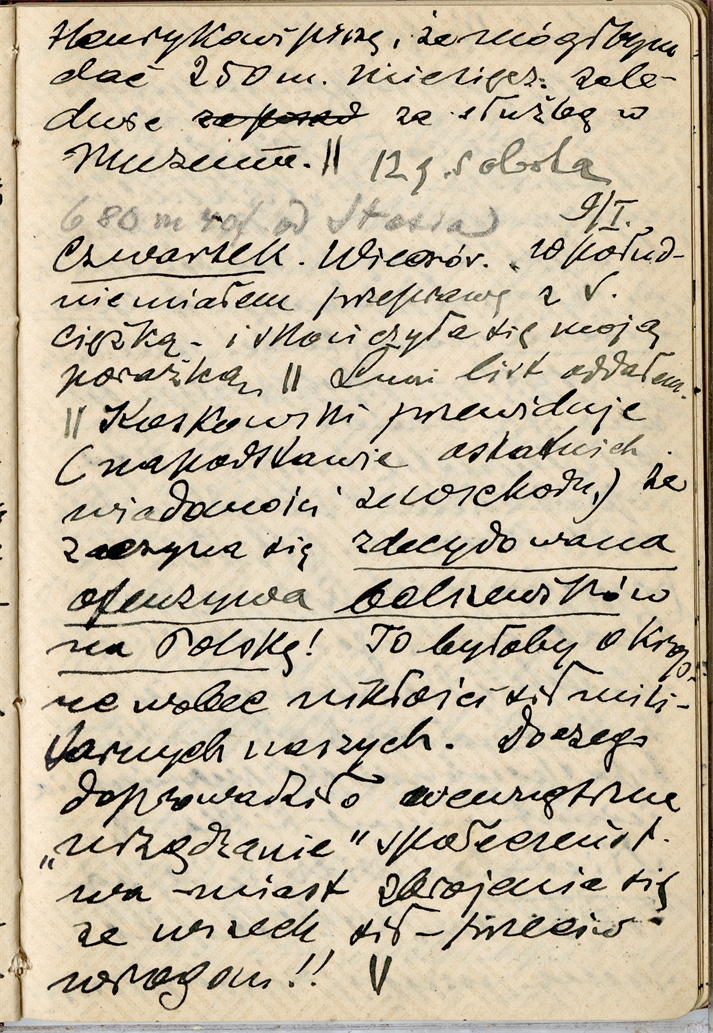 Henrykowi piszę, że mógłbym
dać 250 m. miesięcz. zale-
dwie za służbę w
Muzeum. || 12 g. Sobota
680 m od Stasia) 9/I.
Czwartek. Wieczór. W połud-
nie miałem przeprawę z S.
ciężką - i skończyła się moją
porażką. || Lusi list oddałem.
|| Koskowski przewiduje
(na podstawie ostatnich
wiadomości ze wschodu,) że
zaczyna się zdecydowana
ofenzywa bolszewików
na Polskę! To byłoby okrop-
ne wobec nikłości sił mili-
tarnych naszych. Do czego
doprowadziło wewnętrzne
„urządzanie" społeczeńst-
wa - miast zbrojenia się
ze wszech sił - przeciw
wrogom!! ||